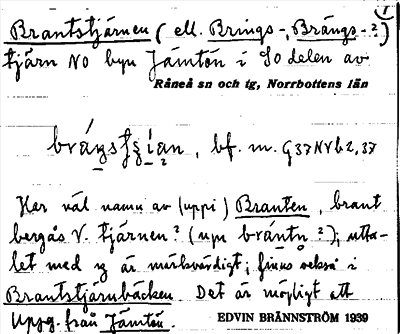 Brantstjärnen (ell. Brings-, Brängs-?) 1
tjärn NO byn Jämtön i SO delen av
Råneå sn och tg, Norrbottens län
bf. m. G37NVb2,37
Har väl namn av (uppi) Branten, brant
bergås V. tjärnen? (upu bräntn?); utta-
let med ŋ är märkvärdigt; finns också i
Brantstjärnbäcken. Det är möjligt att
Uppg. från Jämtön. EDVIN BRÄNNSTRÖM 1939